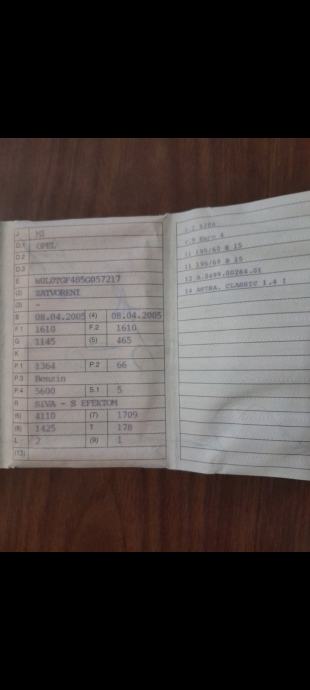 J M1
D.1 OPEL
D.2
D.3
E W0L0TGF485G057217
(2) ZATVORENI
(3) -
B 08.04.2005 (4) 08.04.2005
F.1 1610 F.2 1610
G 1145 (5) 465
K
P.1 1364 P.2 66
P.3 Benzin
P.4 5600 S.1 5
R SIVA - S EFEKTOM
(6) 4110 (7) 1709
(8) 1425 T 178
L 2 (9) 1
(13)
Euro 4
11 195/60 R 15
11 195/60 R 15
14 ASTRA, CLASSIC 1.4 I